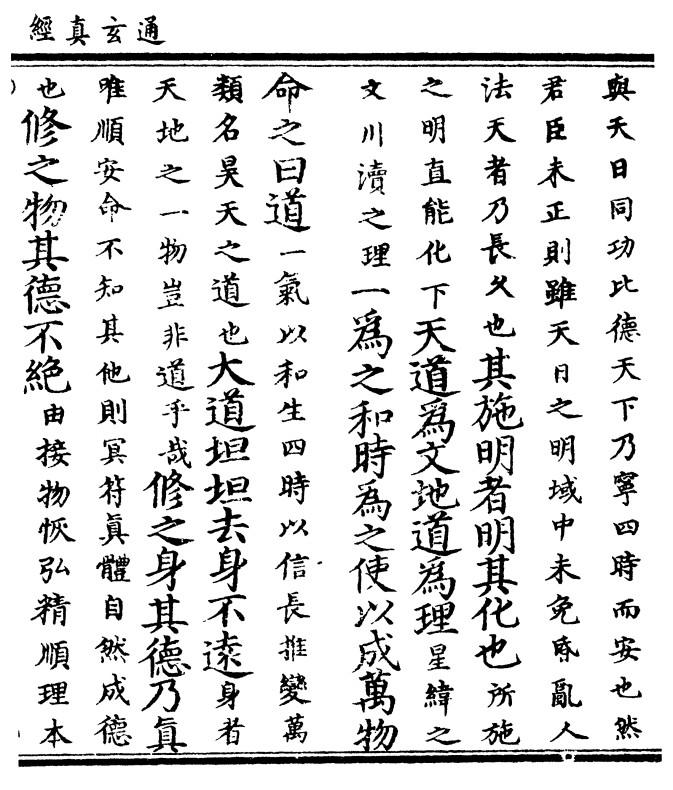 通玄真經
與天日同功比德天下乃寧四時而安也然
君臣未正則雖天日之明域中未免昏亂人
法天者乃長久也其施明者明其化也所施
之明直能化下天道為文地道為理星緯之
文川瀆之理一為之和時為之使以成萬物
命之曰道一氣以和生四時以信長推變萬
類名昊天之道也大道坦坦去身不遠身者
天地之一物豈非道乎哉修之身其德乃真
唯順安命不知其他則冥符真體自然成德
也修之物其德不絕由接物恢弘精順理本